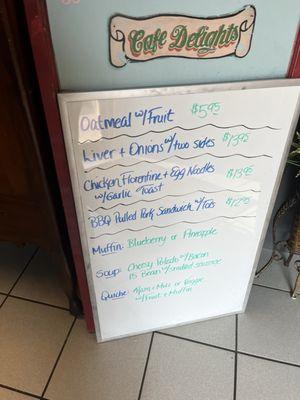 Cafe Delights
Oatmeal w/ Fruit $5.95
Liver + Onions w/ two sides $13.95
Chicken Florentine + Egg Noodles
w/ Garlic Toast $13.95
BBQ Pulled Pork Sandwich w/ Tots $12.95
Muffin: Blueberry or Pineapple
Soup: Cheesy Potato w/ Bacon
15 Bean w/ smoked sausage
Quiche: Ham + or Veggie
w/ Fruit + Muffin